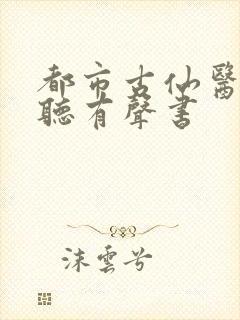 都市古仙醫
聽有聲書
沫雲兮